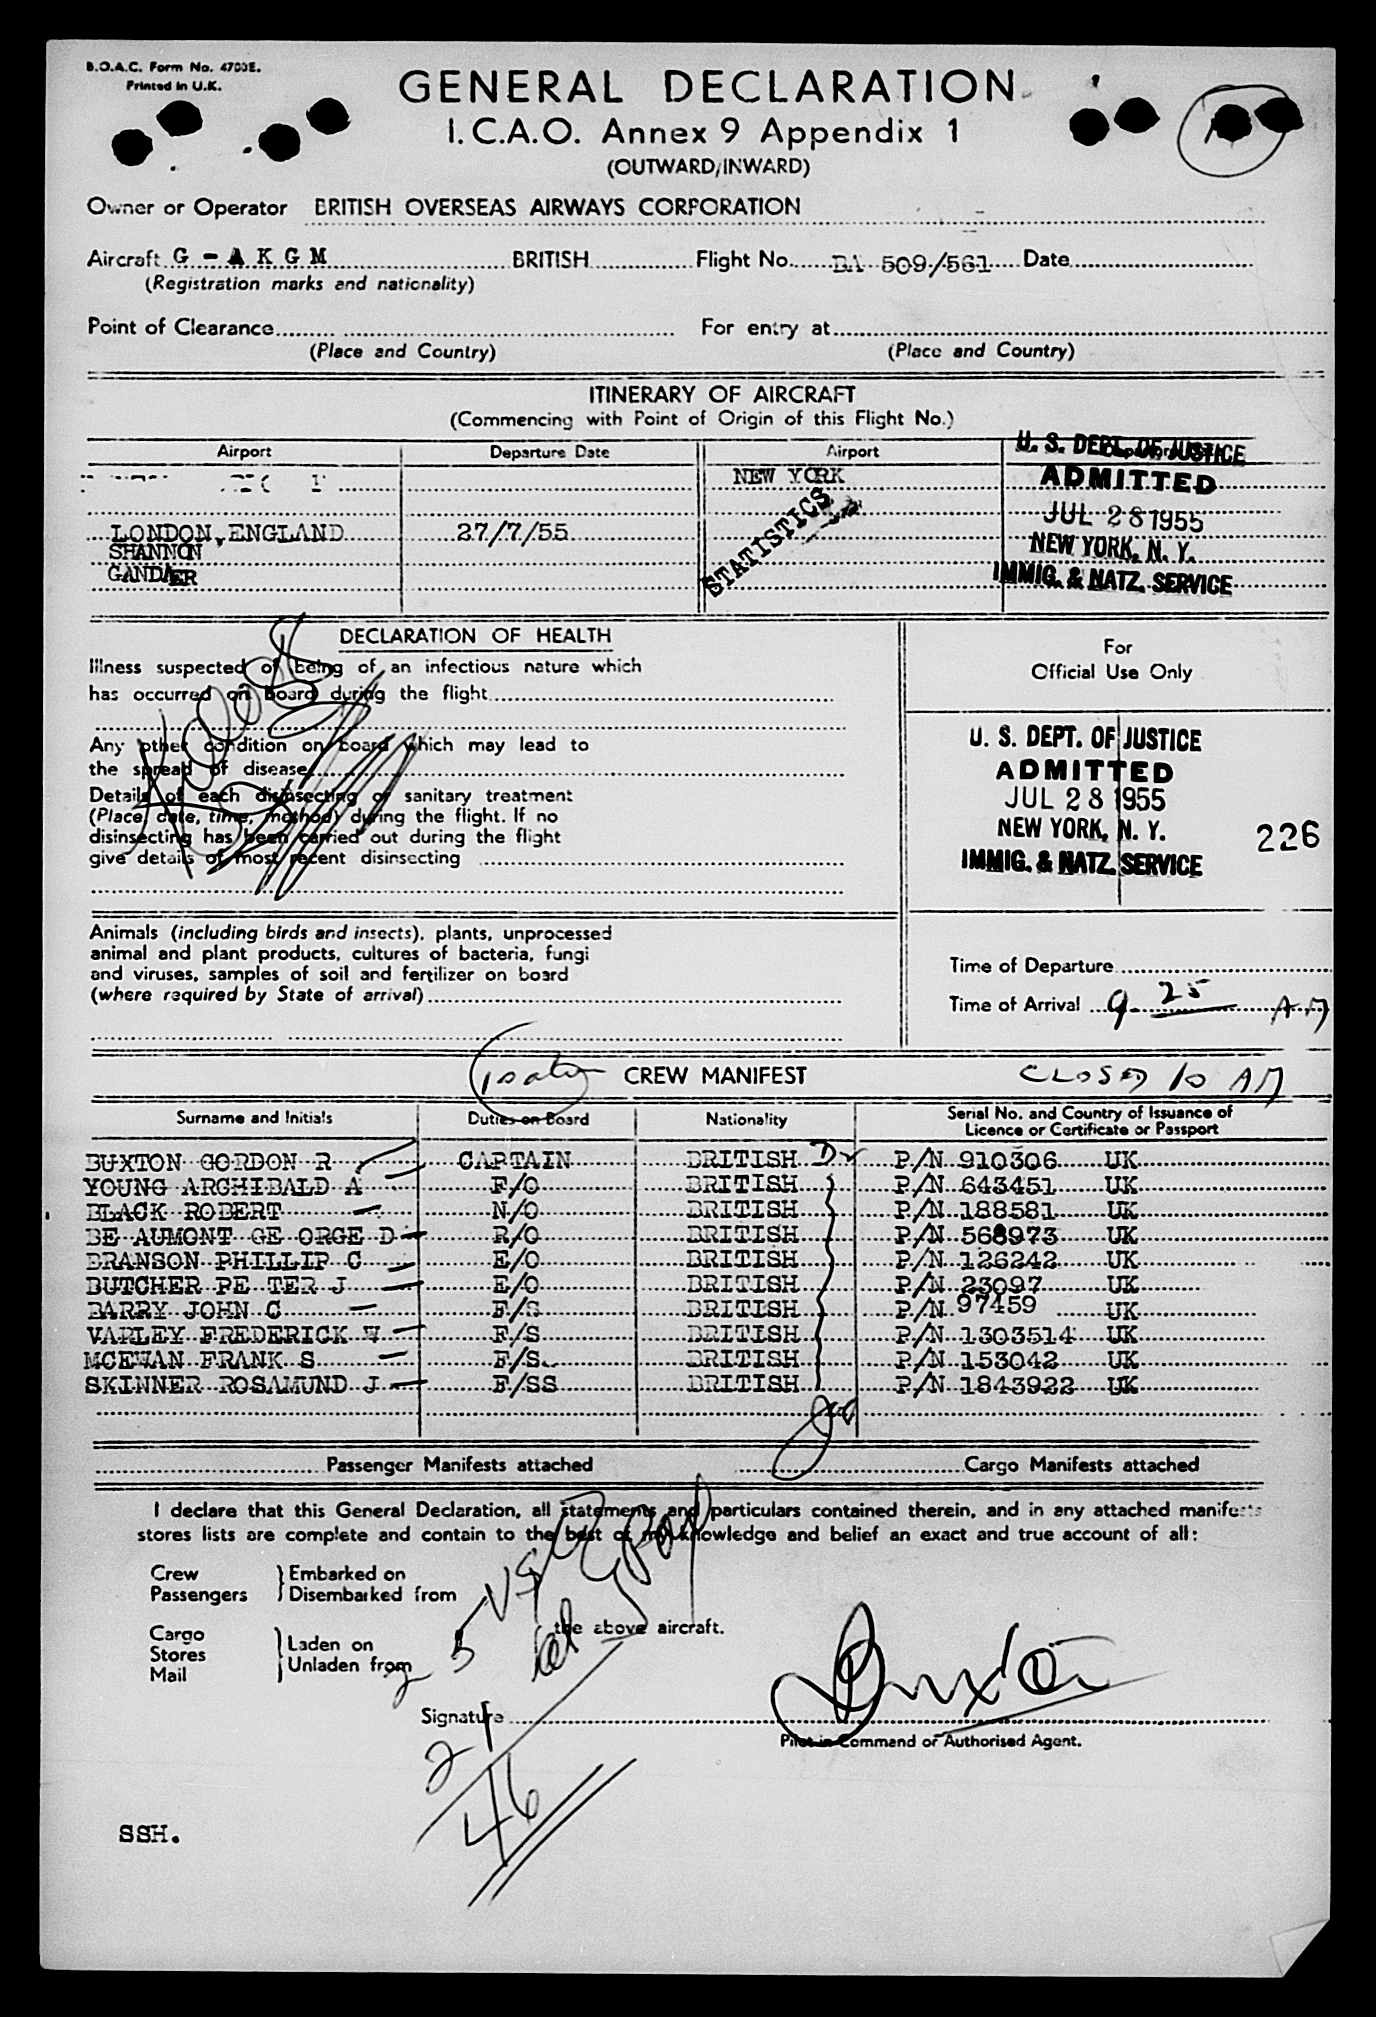 B.O.A.C. Form No. 4700E.
Printed in U.K.
GENERAL DECLARATION
I.C.A.O. Annex 9 Appendix 1
(OUTWARD/INWARD)
Owner or Operator BRITISH OVERSEAS AIRWAYS CORPORATION
Aircraft G - A K G M BRITISH Flight No. BA 509/561 Date
(Registration marks and nationality)
Point of Clearance For entry at
(Place and Country) (Place and Country)
ITINERARY OF AIRCRAFT
(Commencing with Point of Origin of this Flight No.)
Airport Departure Date Airport
U. S. DEPT. OF JUSTICE
ADMITTED
JUL 28 1955
NEW YORK, N. Y.
IMMIG. & NATZ. SERVICE
NEW YORK
STATISTICS
LONDON, ENGLAND 27/7/55
SHANNON
GANDER
DECLARATION OF HEALTH
Illness suspected of being of an infectious nature which
has occurred on board during the flight
Any other condition on board which may lead to
the spread of disease
Details of each disinsecting or sanitary treatment
(Place, date, time, method) during the flight. If no
disinsecting has been carried out during the flight
give details of most recent disinsecting
For
Official Use Only
U. S. DEPT. OF JUSTICE
ADMITTED
JUL 28 1955
NEW YORK, N. Y.
IMMIG. & NATZ. SERVICE
226
Animals (including birds and insects), plants, unprocessed
animal and plant products, cultures of bacteria, fungi
and viruses, samples of soil and fertilizer on board
(where required by State of arrival)
Time of Departure
Time of Arrival 9 25 AM
CREW MANIFEST CLOSED 10 AM
Surname and Initials Duties on Board Nationality Serial No. and Country of Issuance of
Licence or Certificate or Passport
BUXTON GORDON R CAPTAIN BRITISH P/N 910306 UK
YOUNG ARCHIBALD A F/O BRITISH P/N 643451 UK
BLACK ROBERT N/O BRITISH P/N 188581 UK
BE AUMONT GE ORGE D R/O BRITISH P/N 568973 UK
BRANSON PHILLIP C E/O BRITISH P/N 126242 UK
BUTCHER PE TER J E/O BRITISH P/N 23097 UK
BARRY JOHN C F/S BRITISH P/N 97459 UK
VARLEY FREDERICK W F/S BRITISH P/N 1303514 UK
MCEWAN FRANK S F/S. BRITISH P/N 153042 UK
SKINNER ROSAMUND J F/SS BRITISH P/N 1843922 UK
Passenger Manifests attached Cargo Manifests attached
I declare that this General Declaration, all statements and particulars contained therein, and in any attached manifests
stores lists are complete and contain to the best of my knowledge and belief an exact and true account of all:
Crew } Embarked on
Passengers } Disembarked from
the above aircraft.
Cargo
Stores } Laden on
Mail } Unladen from
Signature Buxton
Pilot in Command or Authorised Agent.
21
46
SSH.